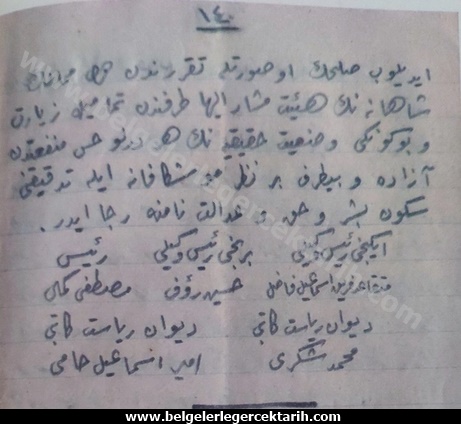 ١٤٠
ايديلوب صلحك او صورتله تقررندن
شاهانه نك هيئت مشار اليها طرفندن زيارت
و بوكونكى وضعيت حقيقيه نك هر درلو حس منفعتدن
آزاده و بيطرف بر نظر موشكافانه ايله تدقيقنى
سكون بشر و حق و عدالت نامنه رجا ايدر.
ايكنجى رئيس وكيلى برنجى رئيس وكيلى رئيس
اسماعيل فاضل حسين رؤف مصطفى كمال
ديوان رياست كاتبى ديوان رياست كاتبى
محمد شكرى اسماعيل حامى
www.belgelerlegercektarih.com